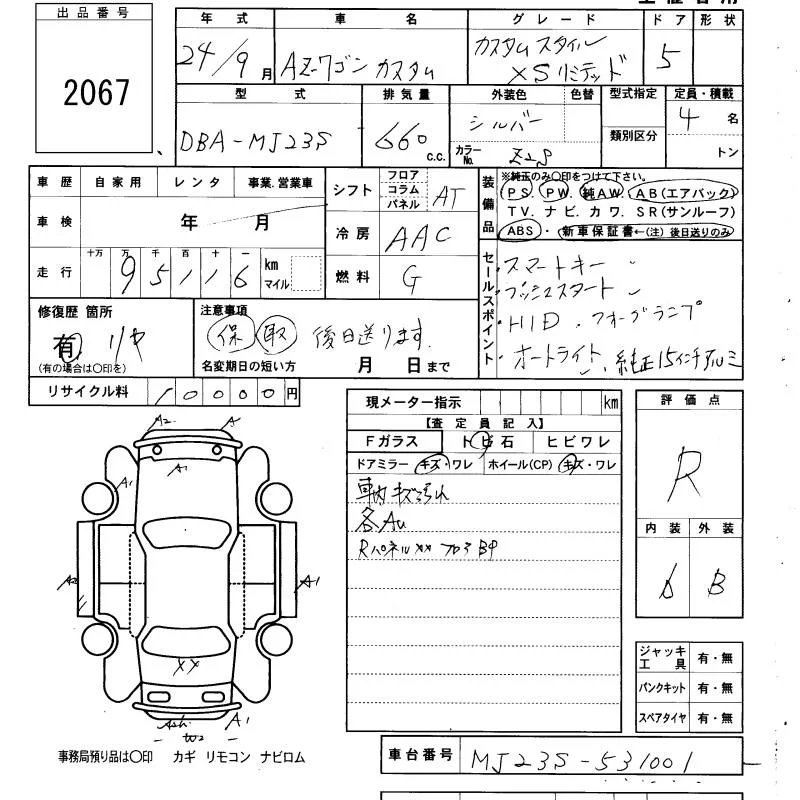 出品番号
2067
年式 車名 グレード ドア 形状
24/9月 AZ-ワゴン カスタム カスタムスタイル XSリミテッド 5
型式 排気量 外装色 色替 型式指定 定員・積載
DBA-MJ23S 660 c.c. シルバー 類別区分 4 名
カラーNo. Z2S トン
車歴 自家用 レンタ 事業.営業車
車検 年 月
走行 十万 万 千 百 十 一 km マイル
95116
シフト フロア コラム パネル AT
冷房 AAC
燃料 G
装備品 ※純正のみ〇印をつけて下さい。
PS. PW. 純AW. AB(エアバック)
TV. ナビ. カワ. SR(サンルーフ)
ABS・新車保証書←(注)後日送りのみ
セールスポイント
・スマートキー
・プッシュスタート
・HID ・フォーグランプ
・オートライト、純正15インチアルミ
修復歴 箇所
有 リヤ
(有の場合は〇印を)
注意事項
保 取 後日送ります.
名変期日の短い方 月 日まで
リサイクル料 10000円
現メーター指示 km
【査定員記入】
Fガラス トビ石 ヒビワレ
ドアミラー キズ・ワレ ホイール(CP) キズ・ワレ
車内キズ汚れ
各AU
Rパネル XX フロア BP
評価点
R
内装 外装
B
A2 A
A1
A1
A2 A1
XX
A1
W2
ジャッキ工具 有・無
パンクキット 有・無
スペアタイヤ 有・無
事務局預り品は〇印 カギ リモコン ナビロム
車台番号 MJ23S-531001